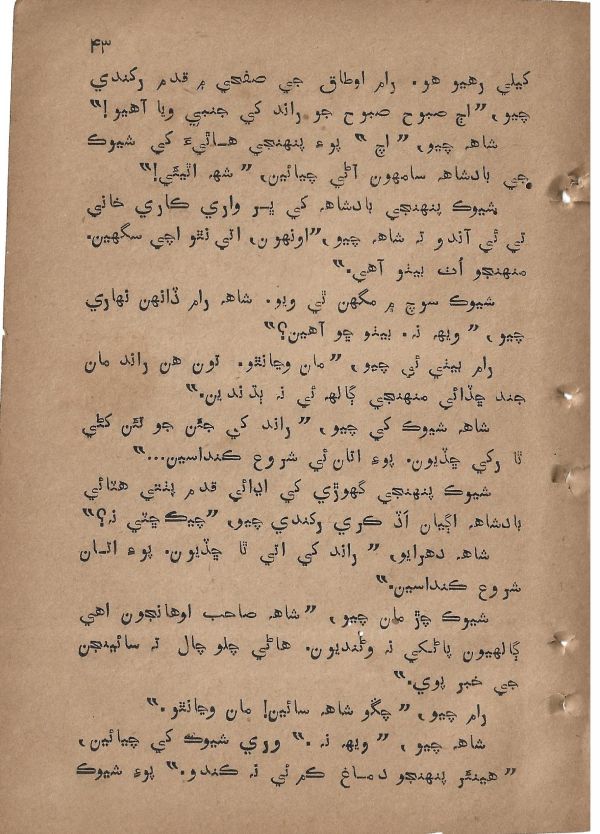 ۴۳
کيلي رهيو هو. رام اوطاق جي صفحي ۾ قدم رکندي
چيو، ”اڄ صبوح صبوح جو راند کي جنبي ويا آهيو!“
شاهہ چيو، ”اڄ“ پوءِ پنهنجي هاٿيءَ کي شيوڪ
جي بادشاهہ سامهون آڻي چيائين، ”شهہ اٿيئي!“
شيوڪ پنهنجي بادشاهہ کي ڀر واري ڪاري خاني
تي ئي آندو تہ شاهہ چيو، ”اونهون، اتي نٿو اچي سگهين.
منهنجو اُٺ بيٺو آهي.“
شيوڪ سوچ ۾ مگهن ٿي ويو. شاهہ رام ڏانهن نهاري
چيو، ”ويهہ نہ. بيٺو ڇو آهين؟“
رام بيٺي ئي چيو، ”مان وڃانٿو. تون هن راند مان
جند ڇڏائي منهنجي ڳالهہ ئي نہ ٻڌندين.“
شاهہ شيوڪ کي چيو، ”راند کي جئن جو تئن کڻي
ٿا رکي ڇڏيون. پوءِ اتان ئي شروع ڪنداسين...“
شيوڪ پنهنجي گهوڙي کي اڍائي قدم پٺتي هٽائي
بادشاهہ اڳيان آڏ ڪري رکندي چيو، ”چيڪ ڇٽي نہ؟“
شاهہ دهرايو، ”راند کي اتي ٿا ڇڏيون. پوءِ اتان
شروع ڪنداسين.“
شيوڪ چڙ مان چيو، ”شاهہ صاحب اوهانجون اهي
ڳالهيون پاڻکي نہ وڻنديون. هاڻي چلو چال تہ سائينجن
جي خبر پوي.“
رام چيو، ”چڱو شاهہ سائين! مان وڃانٿو.“
شاهہ چيو، ”ويهہ نہ.“ وري شيوڪ کي چيائين،
”هينئر پنهنجو دماغ ڪم ئي نہ ڪندو.“ پوءِ شيوڪ